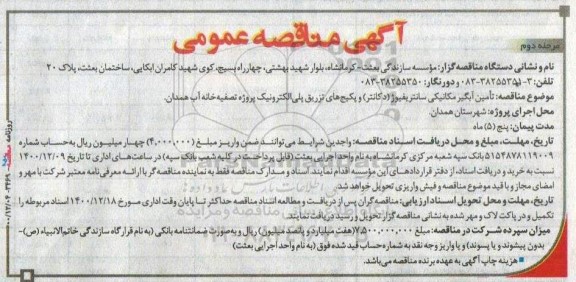 آگهی مناقصه عمومی
مرحله دوم
نام و نشانی دستگاه مناقصه‌گزار: مؤسسه سازندگی بعثت- کرمانشاه، بلوار شهید بهشتی، چهارراه بسیج، کوی شهید کامران ابکایی، ساختمان بعثت، پلاک ۲۰
تلفن: ۳-۳۸۲۵۵۳۵۱-۰۸۳ و دورنگار: ۳۸۲۵۵۳۵۰-۰۸۳
موضوع مناقصه: تأمین آبگیر مکانیکی سانتریفیوژ (دکانتر) و پکیج‌های تزریق پلی‌الکترونیک پروژه تصفیه‌خانه آب همدان.
محل اجرای پروژه: شهرستان همدان
مدت پیمان: پنج (۵) ماه
تاریخ، مهلت، مبلغ و محل دریافت اسناد مناقصه: واجدین شرایط می‌توانند ضمن واریز مبلغ (۴,۰۰۰,۰۰۰) چهار میلیون ریال به‌حساب شماره
۵۱۵۴۸۷۸۱۱۹۰۰۹ بانک سپه شعبه مرکزی کرمانشاه به نام واحد اجرایی بعثت (قابل پرداخت در کلیه شعب بانک سپه) در ساعت‌های اداری تا تاریخ ۱۴۰۰/۱۲/۰۹
نسبت به خرید و دریافت اسناد، از دفتر قراردادهای این مؤسسه اقدام نمایند. اسناد و مدارک مناقصه فقط به نماینده مناقصه‌گر با ارائه معرفی‌نامه معتبر شرکت با مهر و
امضای مجاز و با قید موضوع مناقصه و فیش واریزی تحویل خواهد شد.
تاریخ، مهلت و محل تحویل اسناد ارزیابی: مناقصه‌گران پس از دریافت و مطالعه اسناد مناقصه حداکثر تا پایان وقت اداری مورخ ۱۴۰۰/۱۲/۱۸ اسناد مربوطه را
تکمیل و در پاکت لاک و مهر شده به نشانی مناقصه‌گزار تحویل و رسید دریافت نمایند.
میزان سپرده شرکت در مناقصه: مبلغ ۷,۵۰۰,۰۰۰,۰۰۰ (هفت میلیارد و پانصد میلیون) ریال و به‌صورت ضمانتنامه بانکی (به نام قرارگاه سازندگی خاتم‌الانبیاء (ص)-
بدون پیشوند و یا پسوند) و یا واریز وجه نقد به شماره‌حساب قید شده فوق (به نام واحد اجرایی بعثت)
هزینه چاپ آگهی به عهده برنده مناقصه می‌باشد.